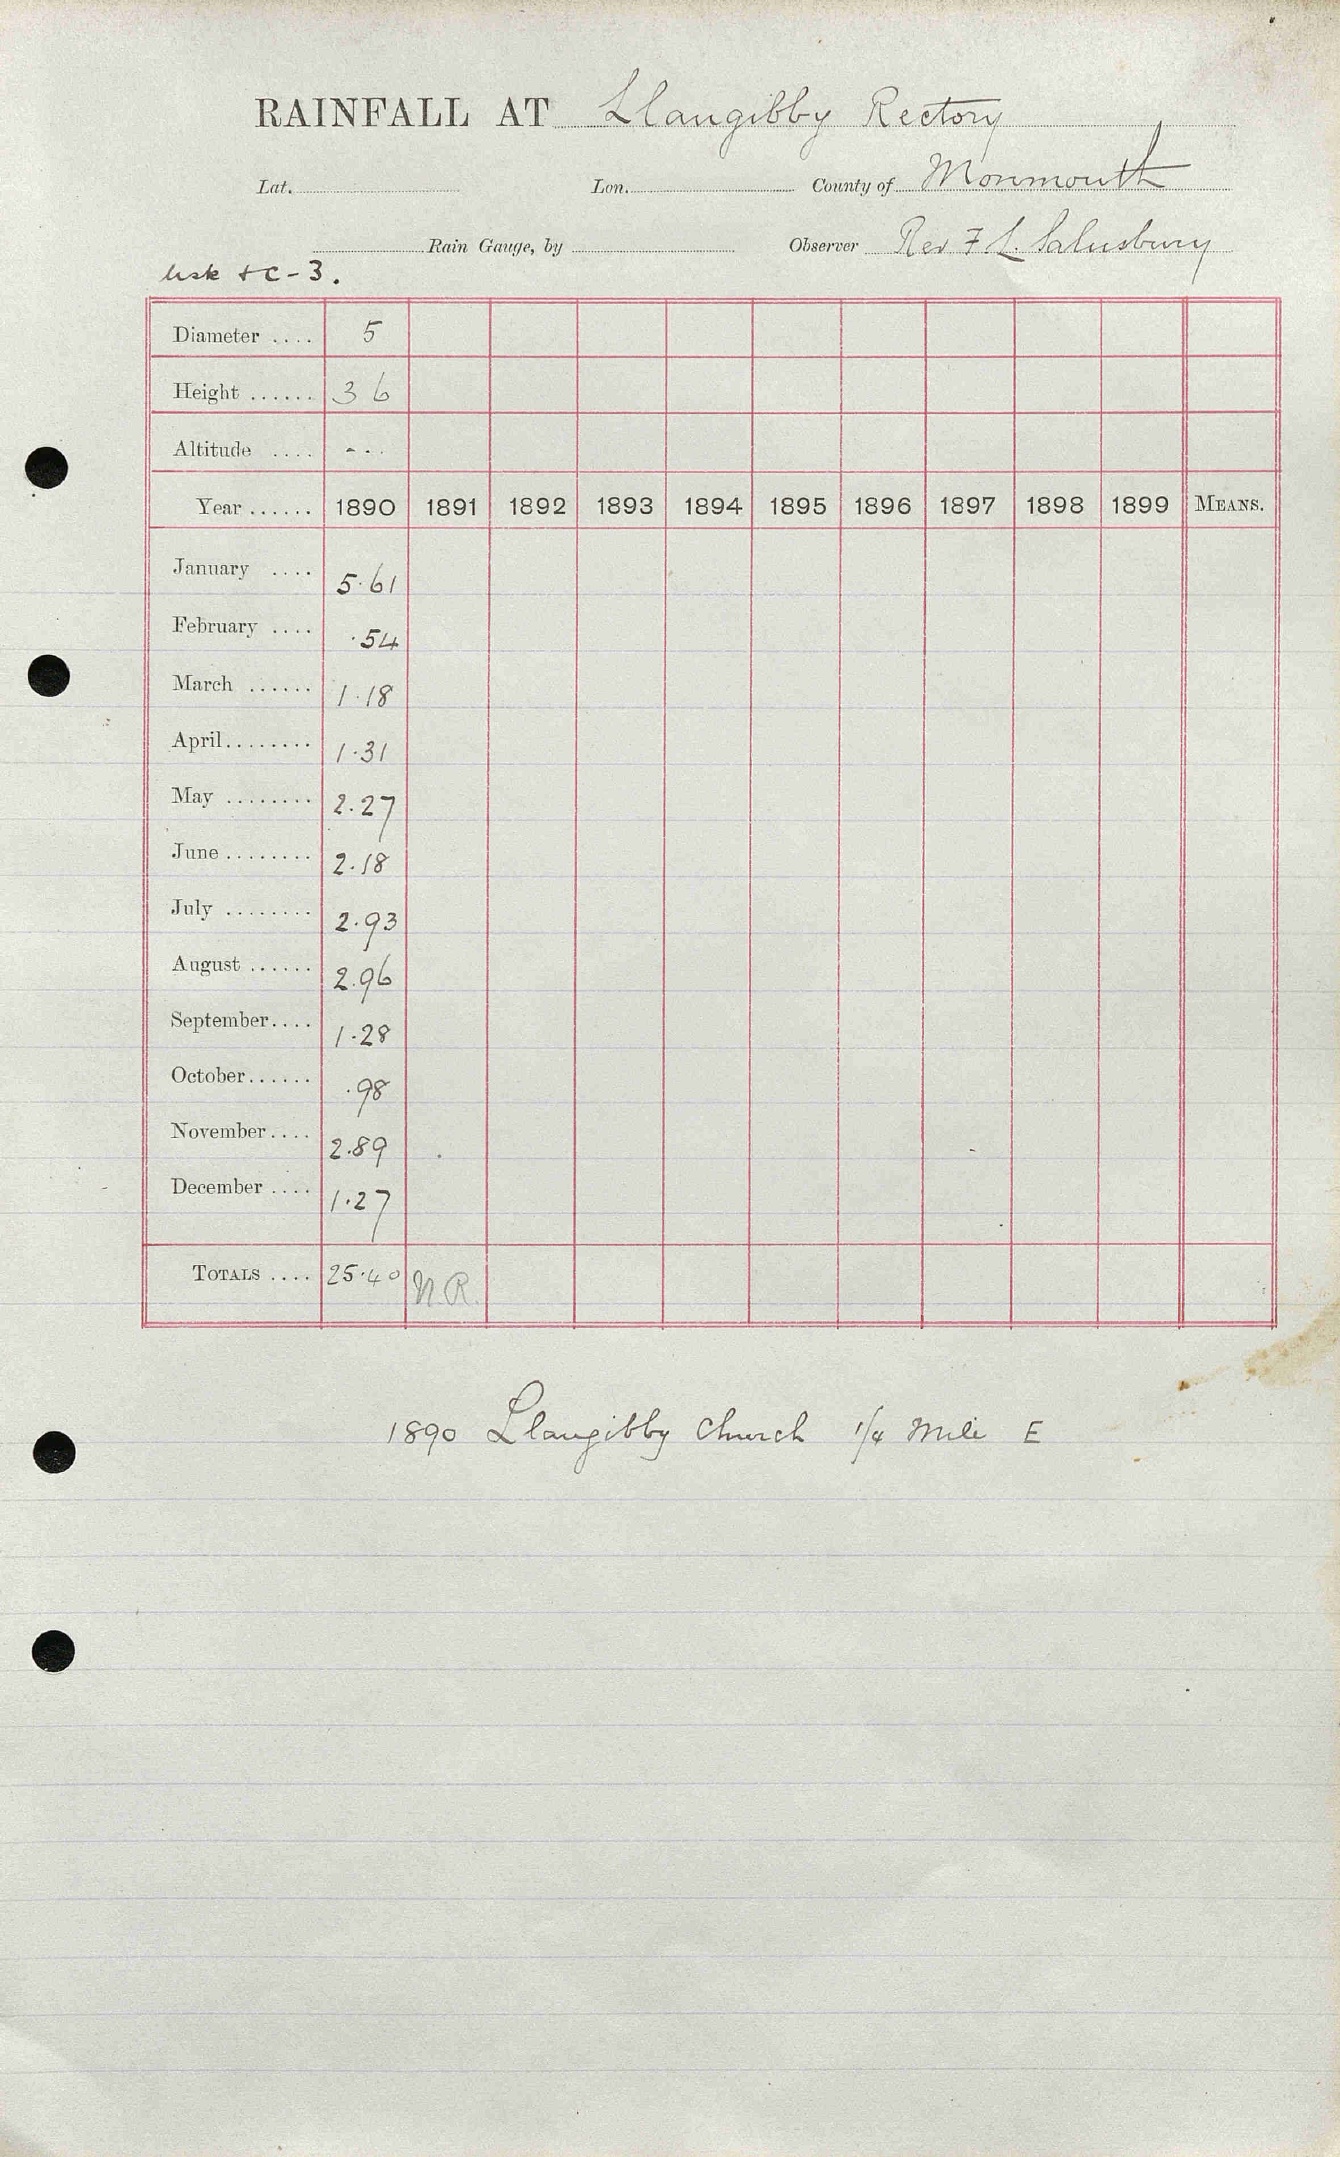 RAINFALL AT Llangibby Rectory
Lat. Lon. County of Monmouth
Rain Gauge, by Observer Rev F L. Salusbury
Usk + C - 3.
Diameter .... 5
Height ...... 3 6
Altitude .... - . .
Year ...... 1890 1891 1892 1893 1894 1895 1896 1897 1898 1899 MEANS.
January .... 5.61
February .... .54
March ...... 1.18
April........ 1.31
May ........ 2.27
June ........ 2.18
July ........ 2.93
August ...... 2.96
September.... 1.28
October...... .98
November.... 2.89
December .... 1.27
TOTALS .... 25.40 N.R.
1890 Llangibby Church 1/4 Mile E